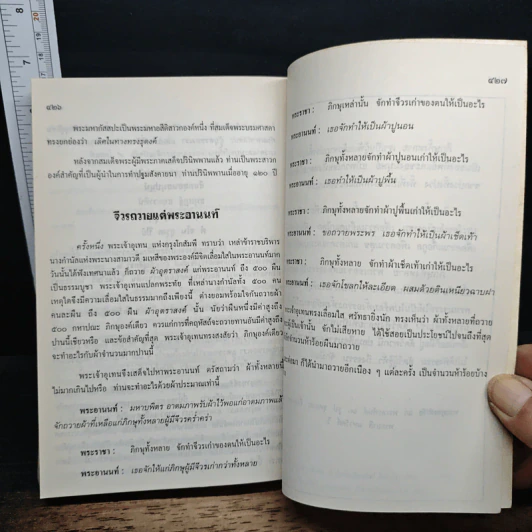 ๔๒๖
พระมหากัสสปะเป็นพระมหาสีติสาวกองค์หนึ่ง ที่สมเด็จพระบรมศาสดา
ทรงยกย่องว่า เลิศในทางทรงธุดงค์
หลังจากสมเด็จพระผู้มีพระภาคเสด็จปรินิพพานแล้ว ท่านเป็นพระสาวก
องค์สำคัญที่เป็นผู้นำในการทำปฐมสังคายนา ท่านปรินิพพานเมื่ออายุ ๑๒๐ ปี
จีวรถวายแด่พระอานนท์
ครั้งหนึ่ง พระเจ้าอุเทน แห่งกรุงโกสัมพี ทราบว่า เหล่าข้าราชบริพาร
นางกำนัลแห่งพระนางสามาวดี มเหสีของพระองค์มีจิตเลื่อมใสในพระอานนท์มาก
วันนั้นได้ฟังเทศนาแล้ว ก็ถวาย ผ้าอุตราสงค์ แก่พระอานนท์ ถึง ๕๐๐ ผืน
เป็นธรรมบูชา พระเจ้าอุเทนแปลกพระทัย ที่เหล่านางกำนัลทั้ง ๕๐๐ คน
เหตุใดจึงมีความเลื่อมใสในธรรมมากถึงเพียงนี้ ต่างยอมพร้อมใจกันถวายผ้า
คนละผืน ถึง ๕๐๐ ผืน ผ้าอุตราสงค์ นั้น นัยว่าผืนหนึ่งมีค่าสูงถึง
๕๐๐ กหาปณะ ภิกษุองค์เดียว ควรแก่การที่คฤหัสถ์จะถวายทานอันมีค่าสูงถึง
ปานนี้เชียวหรือ และข้อสำคัญที่สุด พระเจ้าอุเทนทรงสงสัยว่า ภิกษุองค์เดียว
จะทำอะไรกับผ้าจำนวนมากปานนี้
พระเจ้าอุเทนจึงเสด็จไปหาพระอานนท์ ตรัสถามว่า ผ้าทั้งหลายนี้
ไม่มากเกินไปหรือ ท่านจะทำอะไรด้วยผ้าประมาณเท่านี้
พระอานนท์ : มหาบพิตร อาตมภาพรับผ้าไว้พอแก่อาตมภาพแล้ว
จักถวายผ้าที่เหลือแก่ภิกษุทั้งหลายผู้มีจีวรคร่ำคร่า
พระราชา : ภิกษุทั้งหลาย จักทำจีวรเก่าของตนให้เป็นอะไร
พระอานนท์ : เธอจักให้แก่ภิกษุผู้มีจีวรเก่ากว่าทั้งหลาย
๔๒๗
พระราชา : ภิกษุเหล่านั้น จักทำจีวรเก่าของตนให้เป็นอะไร
พระอานนท์ : เธอจักทำให้เป็นผ้าปูนอน
พระราชา : ภิกษุทั้งหลายจักทำผ้าปูนอนเก่าให้เป็นอะไร
พระอานนท์ : เธอทำให้เป็นผ้าปูพื้น
พระราชา : ภิกษุทั้งหลายจักทำผ้าปูพื้นเก่าให้เป็นอะไร
พระอานนท์ : ขอถวายพระพร เธอจักทำให้เป็นผ้าเช็ดเท้า
พระราชา : ภิกษุทั้งหลาย จักทำผ้าเช็ดเท้าเก่าให้เป็นอะไร
พระอานนท์ : เธอจักโขลกให้ละเอียด ผสมด้วยดินเหนียวฉาบฝา
พระเจ้าอุเทนทรงเลื่อมใส ศรัทธายิ่งนัก ทรงเห็นว่า ผ้าทั้งหลายที่ถวาย
เจ้านั้น จักไม่เสียหาย ได้ใช้สอยเป็นประโยชน์ไปจนถึงที่สุด
ก็ได้นำมาถวายอีกเนือง ๆ แต่ละครั้ง เป็นจำนวนห้าร้อยบ้าง